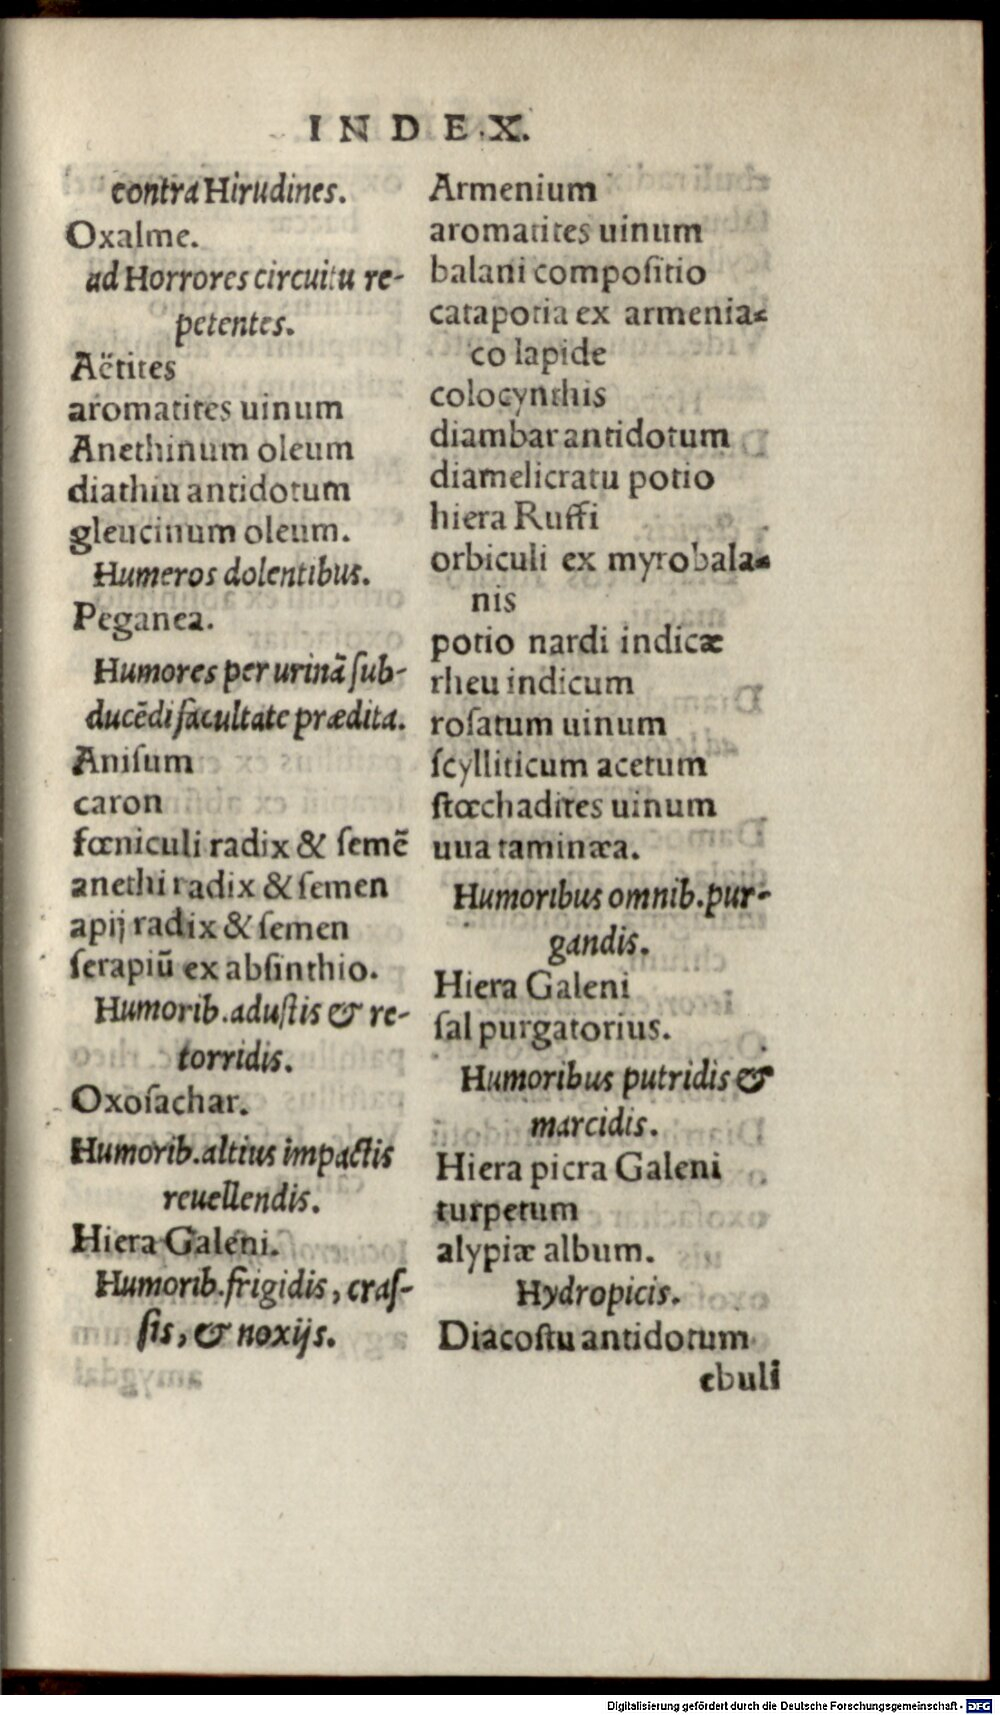 INDEX.
contra Hirudines.
Oxalme.
ad Horrores circuitu re-
petentes.
Aëtites
aromatites uinum
Anethinum oleum
diathiu antidotum
gleucinum oleum.
Humeros dolentibus.
Peganea.
Humores per urinā ſub-
ducēdi facultate prædita.
Aniſum
caron
fœniculi radix & ſemē
anethi radix & ſemen
apij radix & ſemen
ſerapiū ex abſinthio.
Humorib. aduſtis & re-
torridis.
Oxoſachar.
Humorib. altius impactis
reuellendis.
Hiera Galeni.
Humorib. frigidis, craſ-
ſis, & noxijs.
Armenium
aromatites uinum
balani compoſitio
catapotia ex armenia-
co lapide
colocynthis
diambar antidotum
diamelicratu potio
hiera Ruffi
orbiculi ex myrobala-
nis
potio nardi indicæ
rheu indicum
roſatum uinum
ſcylliticum acetum
ſtœchadites uinum
uua taminæa.
Humoribus omnib. pur-
gandis.
Hiera Galeni
ſal purgatorius.
Humoribus putridis &
marcidis.
Hiera picra Galeni
turpetum
alypiæ album.
Hydropicis.
Diacoſtu antidotum
ebuli
Digitalisierung gefördert durch die Deutsche Forschungsgemeinschaft - DFG